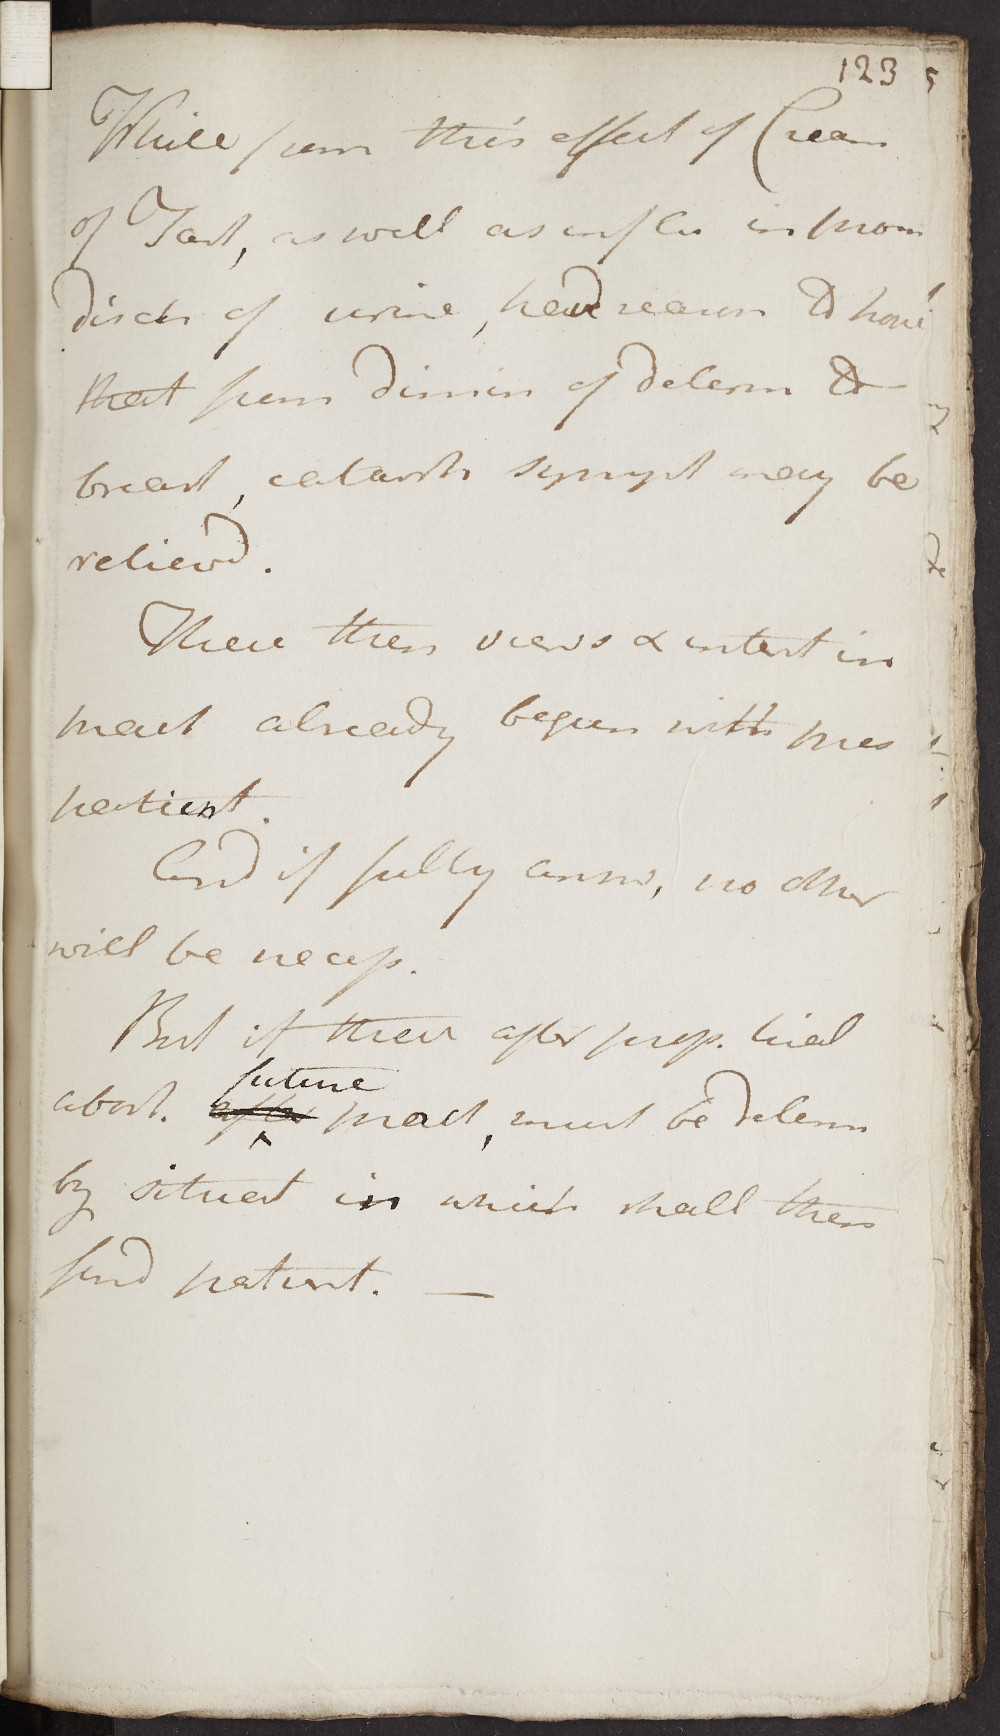 123
While from this effect of Cream
of Tart, as well as influ in prom
disch of urine, have reason to hope
that from dimin of determ to
breast, catarrh sympt may be
reliev'd.
These then views & intent in
pract already begun with pres
patient.
And if fully answ, no other
will be necess.
But if these after prop. trial
abort. future
after pract, must be determ
by situat in which shall then
find patient. —